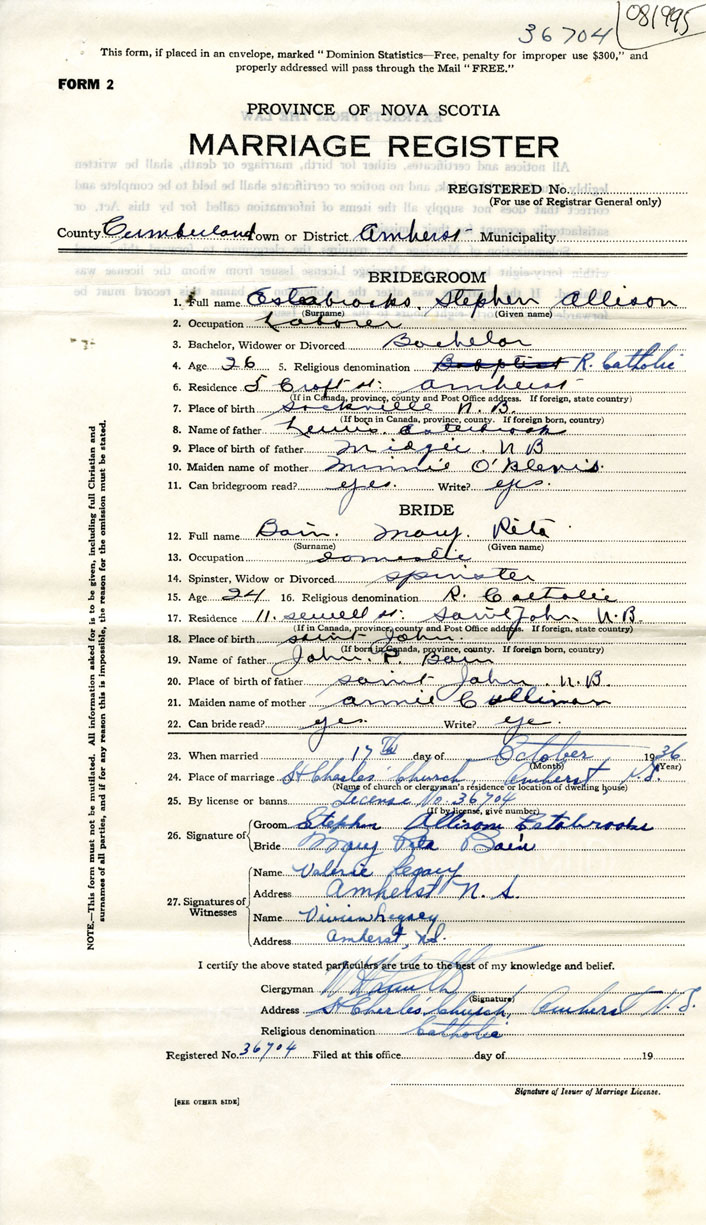 36704
081995
This form, if placed in an envelope, marked "Dominion Statistics—Free, penalty for improper use $300," and
properly addressed will pass through the Mail "FREE."
FORM 2
PROVINCE OF NOVA SCOTIA
MARRIAGE REGISTER
REGISTERED No.
(For use of Registrar General only)
County Cumberland Town or District Amherst Municipality
BRIDEGROOM
1. Full name Estabrooks, Stephen Allison
(Surname) (Given name)
2. Occupation Laborer
3. Bachelor, Widower or Divorced Bachelor
4. Age 26 5. Religious denomination Baptist R. Catholic
6. Residence 5 Croft St. Amherst
(If in Canada, province, county and Post Office address. If foreign, state country)
7. Place of birth Sackville N.B.
(If born in Canada, province, county. If foreign born, country)
8. Name of father Lewis Estabrook
9. Place of birth of father Midgic. N B
10. Maiden name of mother Minnie O'Blenis.
11. Can bridegroom read? yes. Write? yes.
BRIDE
12. Full name Bain. Mary. Rita
(Surname) (Given name)
13. Occupation domestic
14. Spinster, Widow or Divorced spinster
15. Age 24 16. Religious denomination R. Catholic
17. Residence 11. Sewell St. Saint John N.B.
(If in Canada, province, county and Post Office address. If foreign, state country)
18. Place of birth Saint John.
(If born in Canada, province, county. If foreign born, country)
19. Name of father John. P. Bain
20. Place of birth of father Saint John. N.B.
21. Maiden name of mother Annie Cullinan
22. Can bride read? yes. Write? yes.
23. When married 17th day of October 1936
(Month) (Year)
24. Place of marriage St Charles' Church, Amherst N.S.
(Name of church or clergyman's residence or location of dwelling house)
25. By license or banns License No. 36704
(If by license, give number)
26. Signature of Groom Stephen Allison Estabrooks
Bride Mary Rita Bain
27. Signatures of Witnesses
Name Valerie Legacy
Address Amherst N. S.
Name Vivian Legacy
Address Amherst, N.S.
I certify the above stated particulars are true to the best of my knowledge and belief.
Clergyman
(Signature)
Address St Charles' Church, Amherst N. S.
Religious denomination Catholic
Registered No. 36704 Filed at this office day of 19
Signature of Issuer of Marriage License.
[SEE OTHER SIDE]
NOTE.—This form must not be mutilated. All information asked for is to be given, including full Christian and
surnames of all parties, and if for any reason this is impossible, the reason for the omission must be stated.